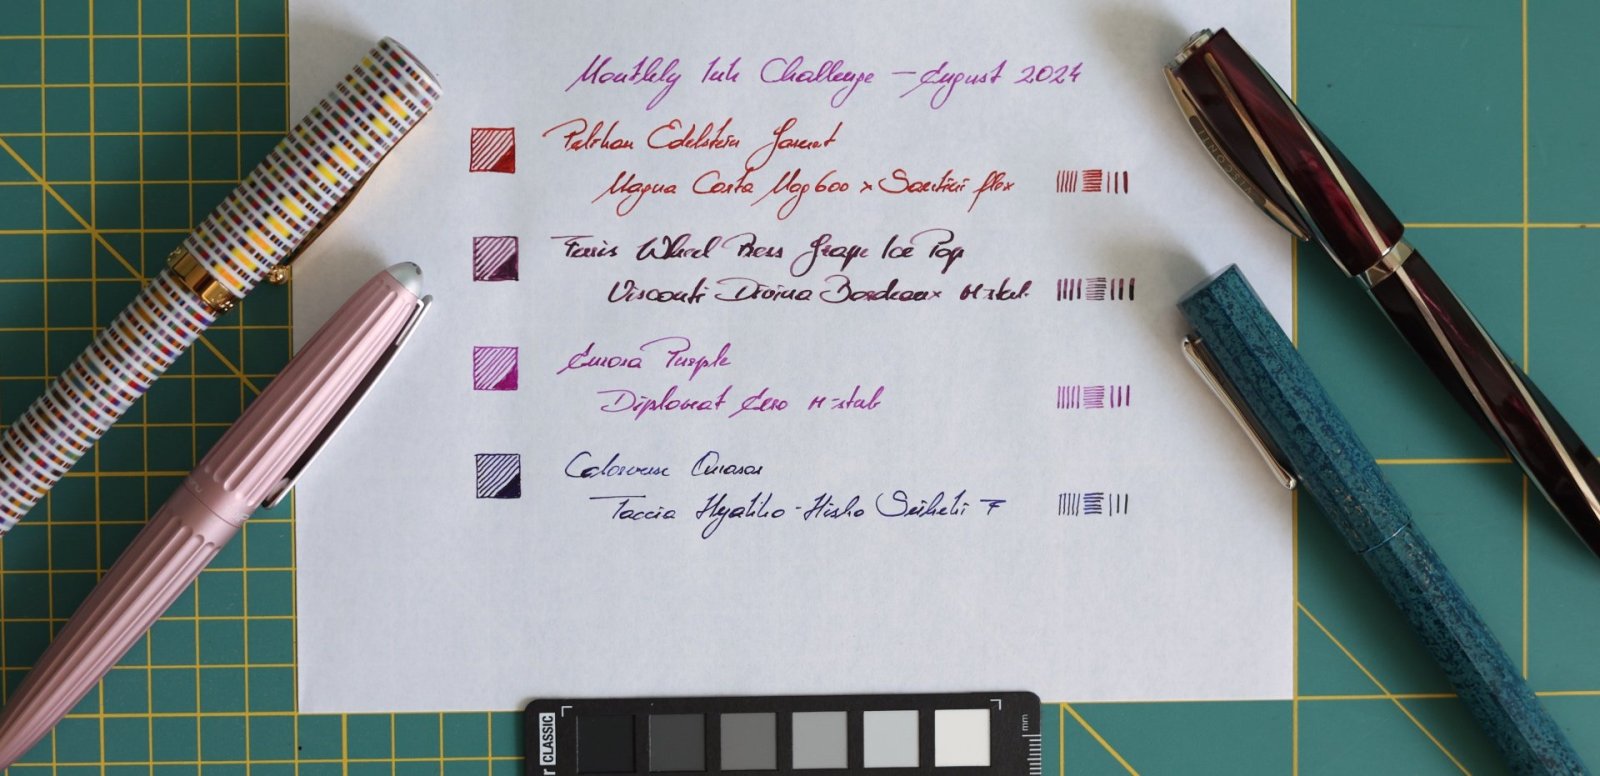 Monthly Ink Challenge – August 2024
Pelikan Edelstein Garnet
Magna Carta Mag600 x Santini flex
Ferris Wheel Press Grape Ice Pop
Visconti Divina Bordeaux M-stub
Aurora Purple
Diplomat Aero M-stub
Colorverse Quasar
Taccia Hyakko-Hisho Seikeki F
VISCONTI
CLASSIC
mm